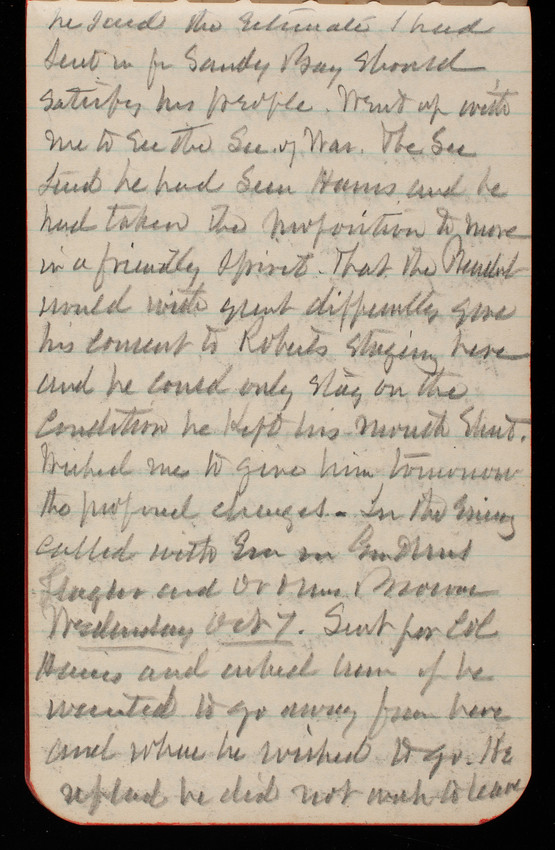 he said the estimate I had
sent in for Sandy Bay should
satisfy his people. Went up with
me to see the Sec. of War. The Sec
said he had seen Hains and he
had taken the proposition to move
in a friendly spirit. That the President
would with great difficulty give
his consent to Roberts staying here
and he could only stay on the
condition he kept his mouth shut.
Wished me to give him tomorrow
the proposed changes. In the Evening
called with Em on Gen &
and Dr & Mrs.
Wednesday Oct 7. Sent for Col
Hains and asked him if he
wanted to go away from here
and where he wished to go. He
replied he did not wish to leave